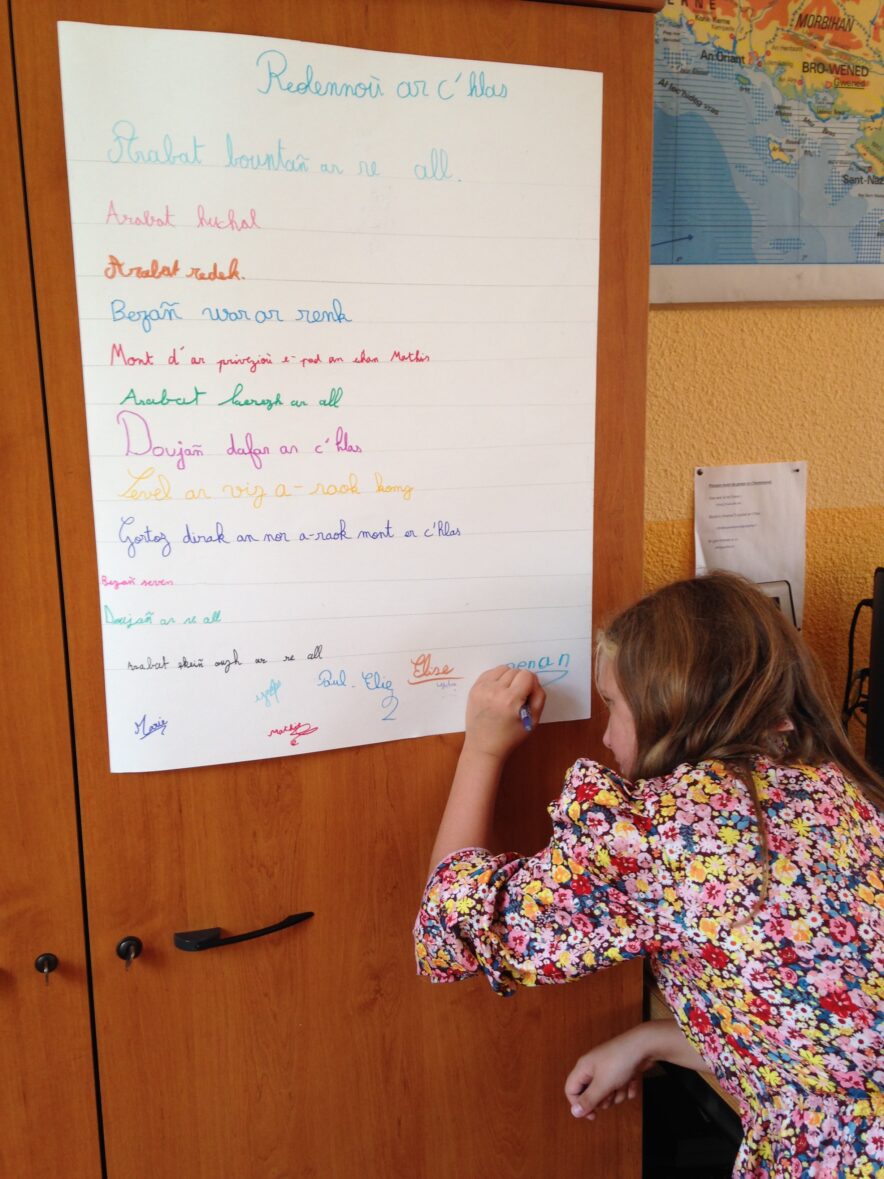 Redennoù ar c'hlas
Arabat bountañ ar re all.
Arabat huchal
Arabat redek.
Bezañ war ar renk
Mont d'ar privezioù e-pad an ehan Mathis
Arabat ar all
Doujañ dafar ar c'hlas
Sevel ar viz a-raok komz
Gortoz dirak an nor a-raok mont er c'hlas
Bezañ seven
Doujañ ar re all
arabat skeiñ ouzh ar re all
Paul. Elie
2
Elise
enan
Marie
Mathis
ERNE
MORBIHAN
An Oriant
BRO-WENED
Gwened
Sant-Naz